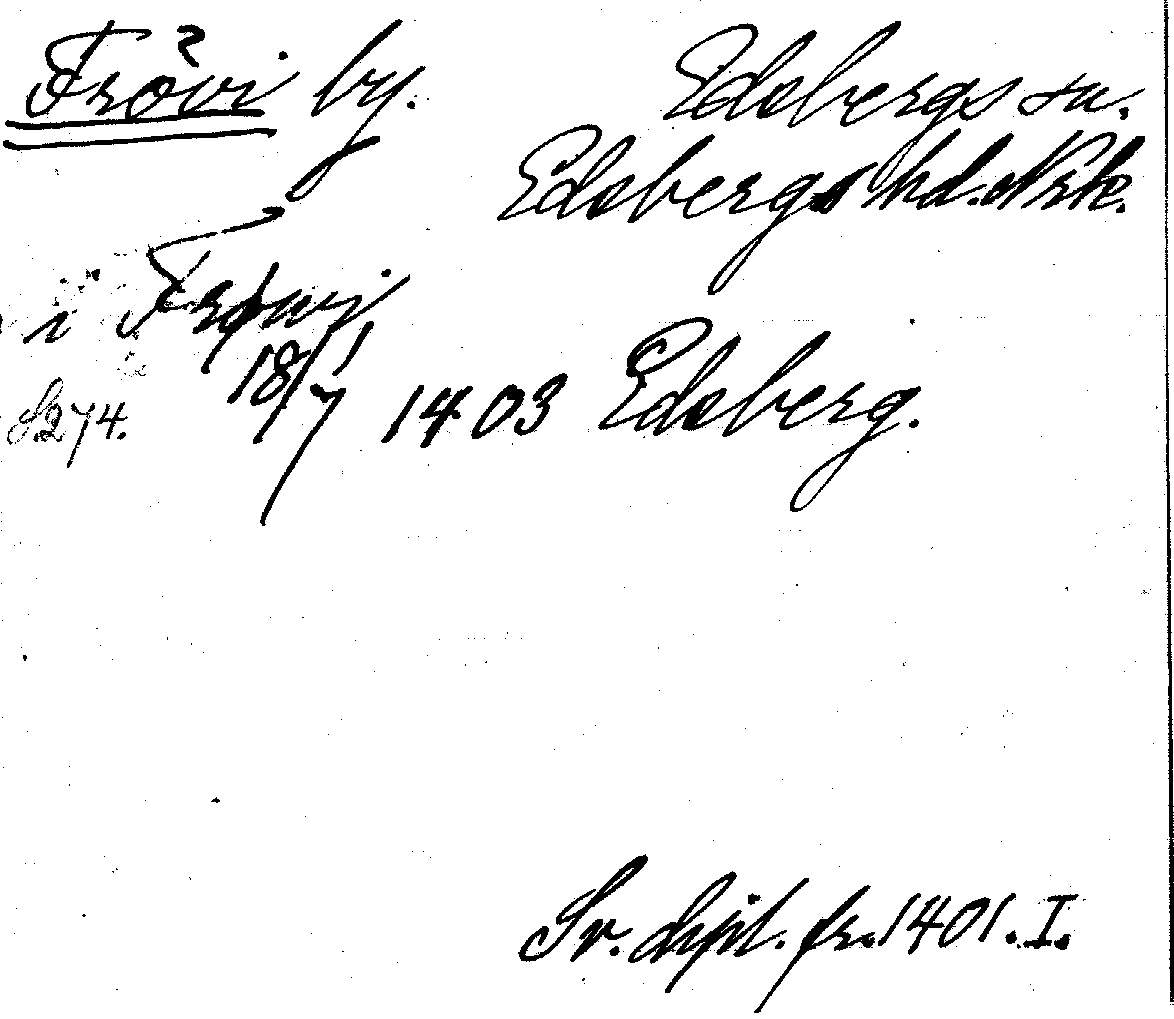 Frövi by. Edsbergs sn.
Edsbergs hd. Nrk.
i Frøwi
S. 274. 18/7 1403 Edsberg.
Sv. dipl. fr. 1401. I.